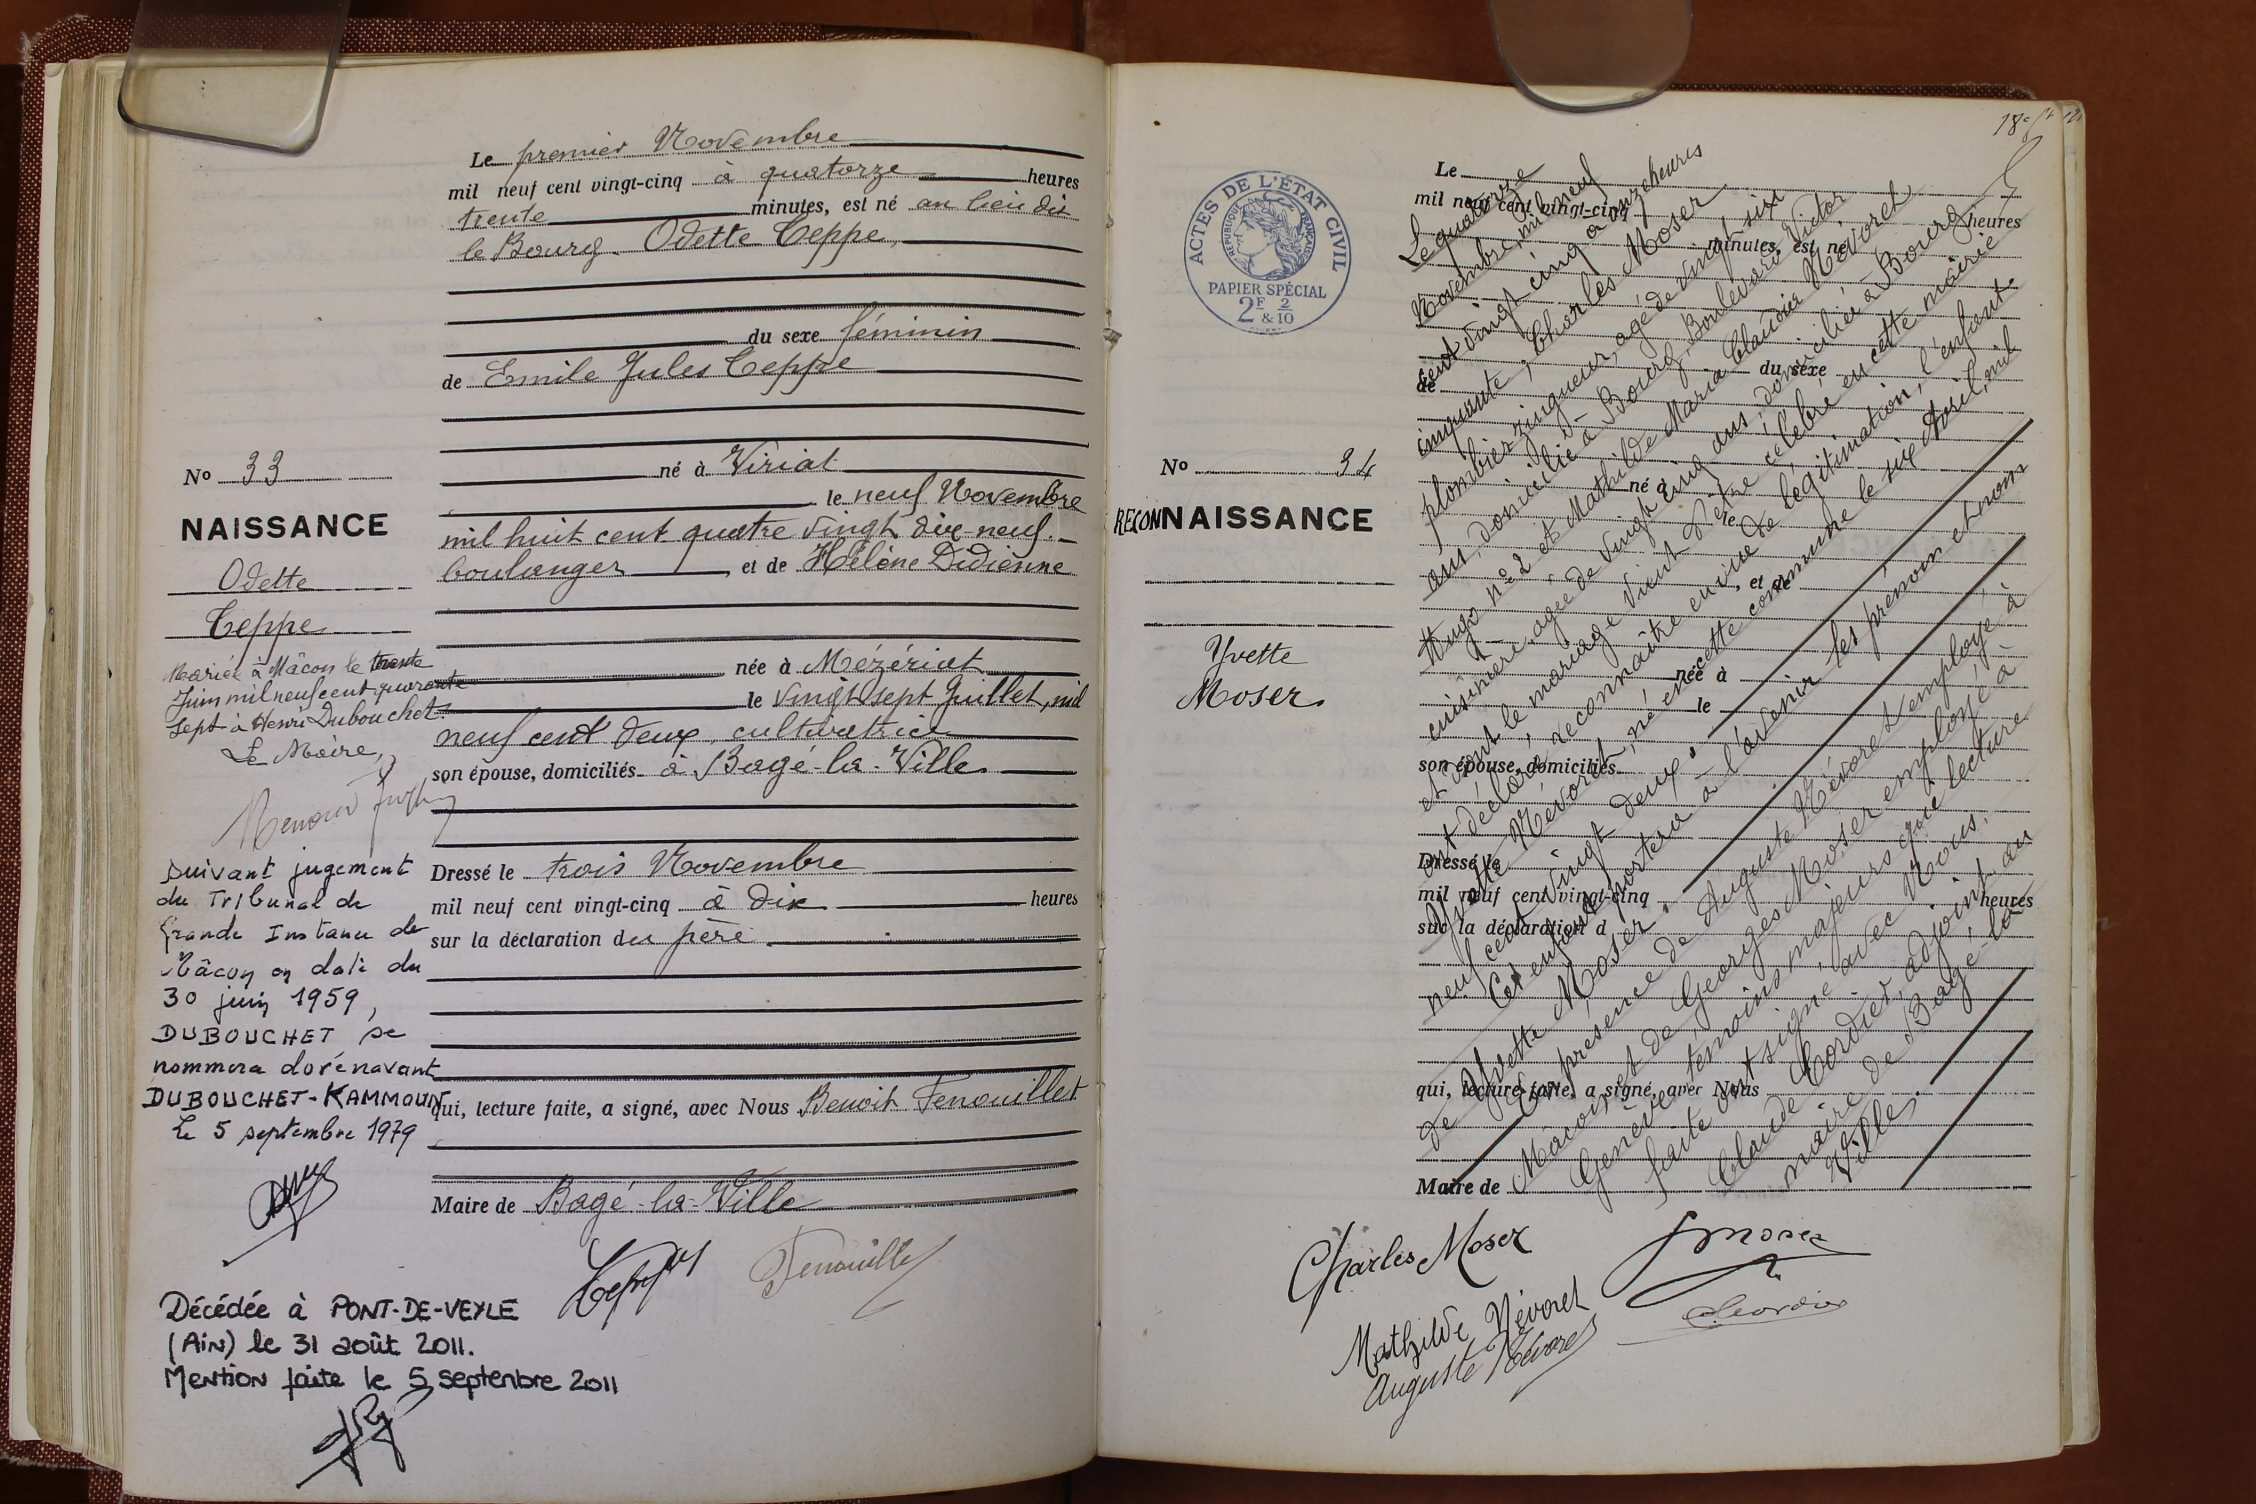 Le premier Novembre
mil neuf cent vingt-cinq à quatorze heures
trente minutes, est né au lieu dit
le Bourg. Odette Teppe,
du sexe féminin
de Emile Jules Teppe
né à Viriat
le neuf Novembre
mil huit cent quatre vingt dix neuf.
boulanger, et de Hélène Didienne
née à Mézériat
le vingt sept Juillet, mil
neuf cent deux, cultivatrice
son épouse, domiciliés à Bagé-la-Ville
Dressé le trois Novembre
mil neuf cent vingt-cinq à dix heures
sur la déclaration du père
qui, lecture faite, a signé, avec Nous Benoit Fenouillet
Maire de Bagé-la-Ville
Fenouillet
No 33
NAISSANCE
Odette
Teppe
Mariée à Mâcon le trente
Juin mil neuf cent quarante
sept à Henri Dubouchet.
Le Maire,
Suivant jugement
du Tribunal de
Grande Instance de
Mâcon en date du
30 juin 1959,
DUBOUCHET se
nommera dorénavant
DUBOUCHET-KAMMOUN
Le 5 septembre 1979
Décédée à PONT-DE-VEYLE
(Ain) le 31 août 2011.
Mention faite le 5 septembre 2011
ACTES DE L'ÉTAT CIVIL
RÉPUBLIQUE FRANÇAISE
PAPIER SPÉCIAL
2F & 2/10
No 34
RECONNAISSANCE
Yvette
Moser
Le
mil neuf cent vingt-cinq
heures
minutes, est né
du sexe
de
né à
le
, et de
née à
le
son épouse, domiciliés
Dressé le
mil neuf cent vingt-cinq
heures
sur la déclaration d
qui, lecture faite, a signé, avec Nous
Maire de
Le quatorze
Novembre, mil neuf
cent vingt cinq à onze heures
cinquante, Charles Moser
plombier zingueur, agé de vingt six
ans, domicilié à Bourg, Boulevard Victor
Hugo n° 2 et Mathilde Maria Claudia Névoret
cuisinière, agée de vingt cinq ans, domiciliée à Bourg
et dont le mariage vient d'être célébré en cette mairie
ont déclaré reconnaître en vue de légitimation, l'enfant
Yvette Névoret, né en cette commune le six Avril, mil
neuf cent vingt deux.
Cet enfant portera à l'avenir les prénom et nom
de Yvette Moser.
En présence de Auguste Névoret employé à
Mâcon et de Georges Moser employé à
Genève témoins majeurs qui lecture
faite ont signé avec Nous,
Claude Cordier, adjoint au
maire de Bagé-la
Ville.
Charles Moser
Moser
Mathilde Névoret
Cordier
Auguste Névoret